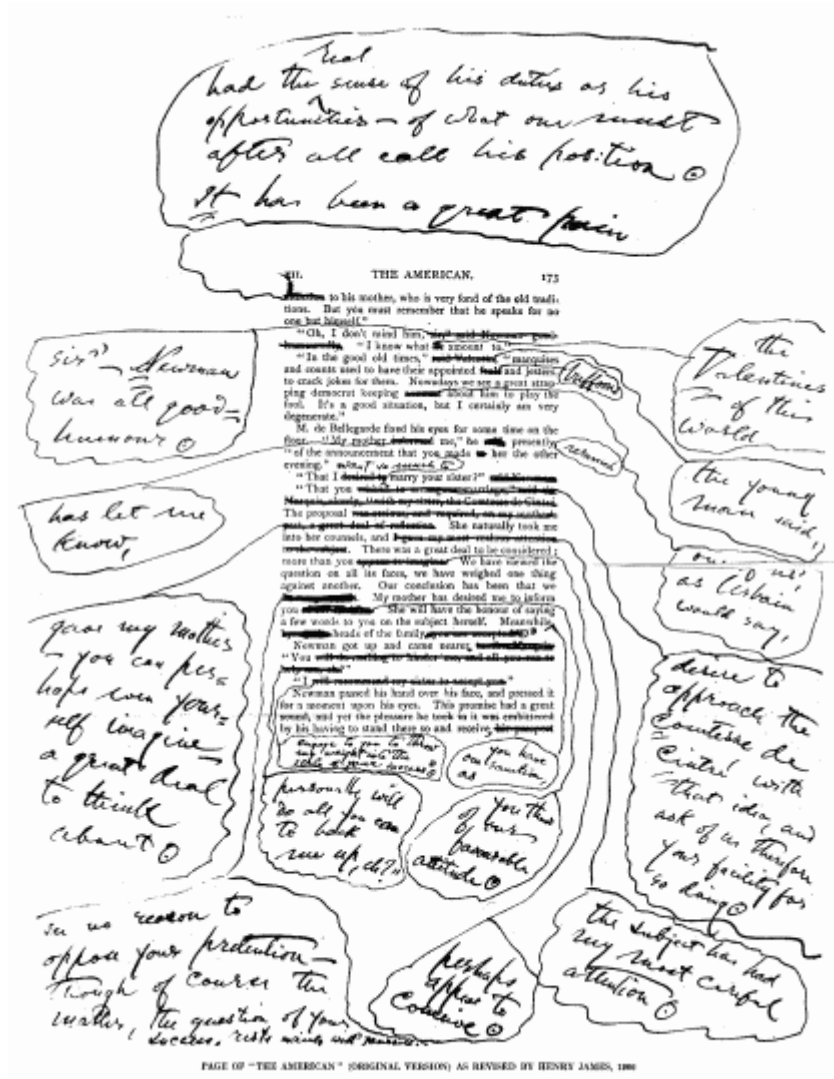 real
had the sense of his duties as his
opportunities – of what one must
after all call his position.
It has been a great pain
XII. THE AMERICAN. 173
to his mother, who is very fond of the old tradi-
tions. But you must remember that he speaks for no
one but himself."
"Oh, I don't mind him, sir," said Newman good-
humouredly. "I know what he amount to."
"In the good old times," said Valentin, "marquises
and counts used to have their appointed fools and jesters
to crack jokes for them. Nowadays we see a great strap-
ping democrat keeping about him to play the
fool. It's a good situation, but I certainly am very
degenerate."
M. de Bellegarde fixed his eyes for some time on the
floor. "My mother informed me," he presently
"of the announcement that you made to her the other
evening."
"That I desired to marry your sister?"
"That you
The proposal She naturally took me
into her counsels, and
There was a great deal to be considered;
more than you appear to imagine. We have viewed the
question on all its faces, we have weighed one thing
against another. Our conclusion has been that we
My mother has desired me to inform
you She will have the honour of saying
a few words to you on the subject herself. Meanwhile
heads of the family
Newman got up and came nearer.
"You
"I will recommend my sister to accept you."
Newman passed his hand over his face, and pressed it
for a moment upon his eyes. This promise had a great
sound, and yet the pleasure he took in it was embittered
by his having to stand there so and receive
sir" – Newman
was all good-
humour.
has let me
know,
gave my mother
– you can per-
haps even your-
self imagine –
a great deal
to think
about.
see no reason to
oppose your pretention –
though of course the
matter, the question of your
success, rests
buffoons
returned
the
Valentines
of this
world
the young
man said,
on us'
as Urbain
would say,
desire to
approach the
Comtesse de
Cintré with
that idea, and
ask of us therefore
your facility for
so doing.
the subject has had
my most careful
attention.
engage to you to throw
my weight into the
scale of your success.
you have
our sanction,
as
personally will
do all you can
to back
me up, eh?"
you thus
of our
favourable
attitude.
perhaps
appear to
conceive.
PAGE OF "THE AMERICAN" (ORIGINAL VERSION) AS REVISED BY HENRY JAMES, 1906